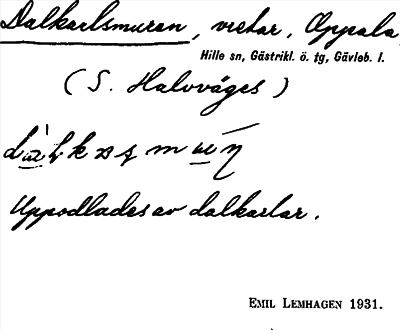 Dalkarlsmuren, vretar, Oppala
Hille sn, Gästrikl. ö. tg, Gävleb. l.
(S. Halvväges)
Uppodlades av dalkarlar.
EMIL LEMHAGEN 1931.